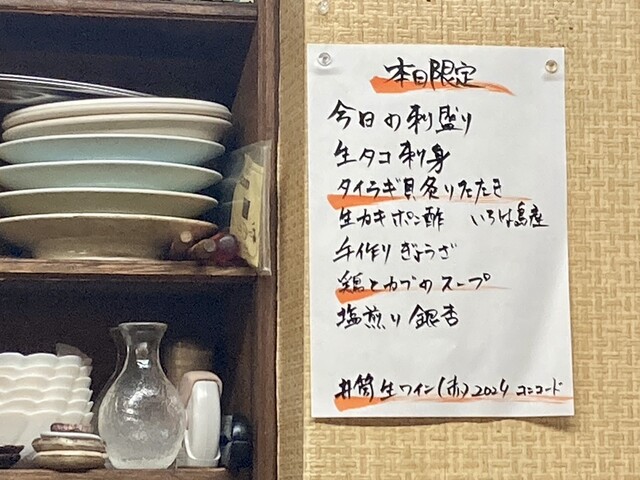 本日限定
今日の刺盛り
生タコ刺身
タイラギ貝炙りたたき
生カキポン酢 いろは島産
手作りぎょうざ
鶏とカブのスープ
塩煎り銀杏
井筒生ワイン(赤)2024 コンコード